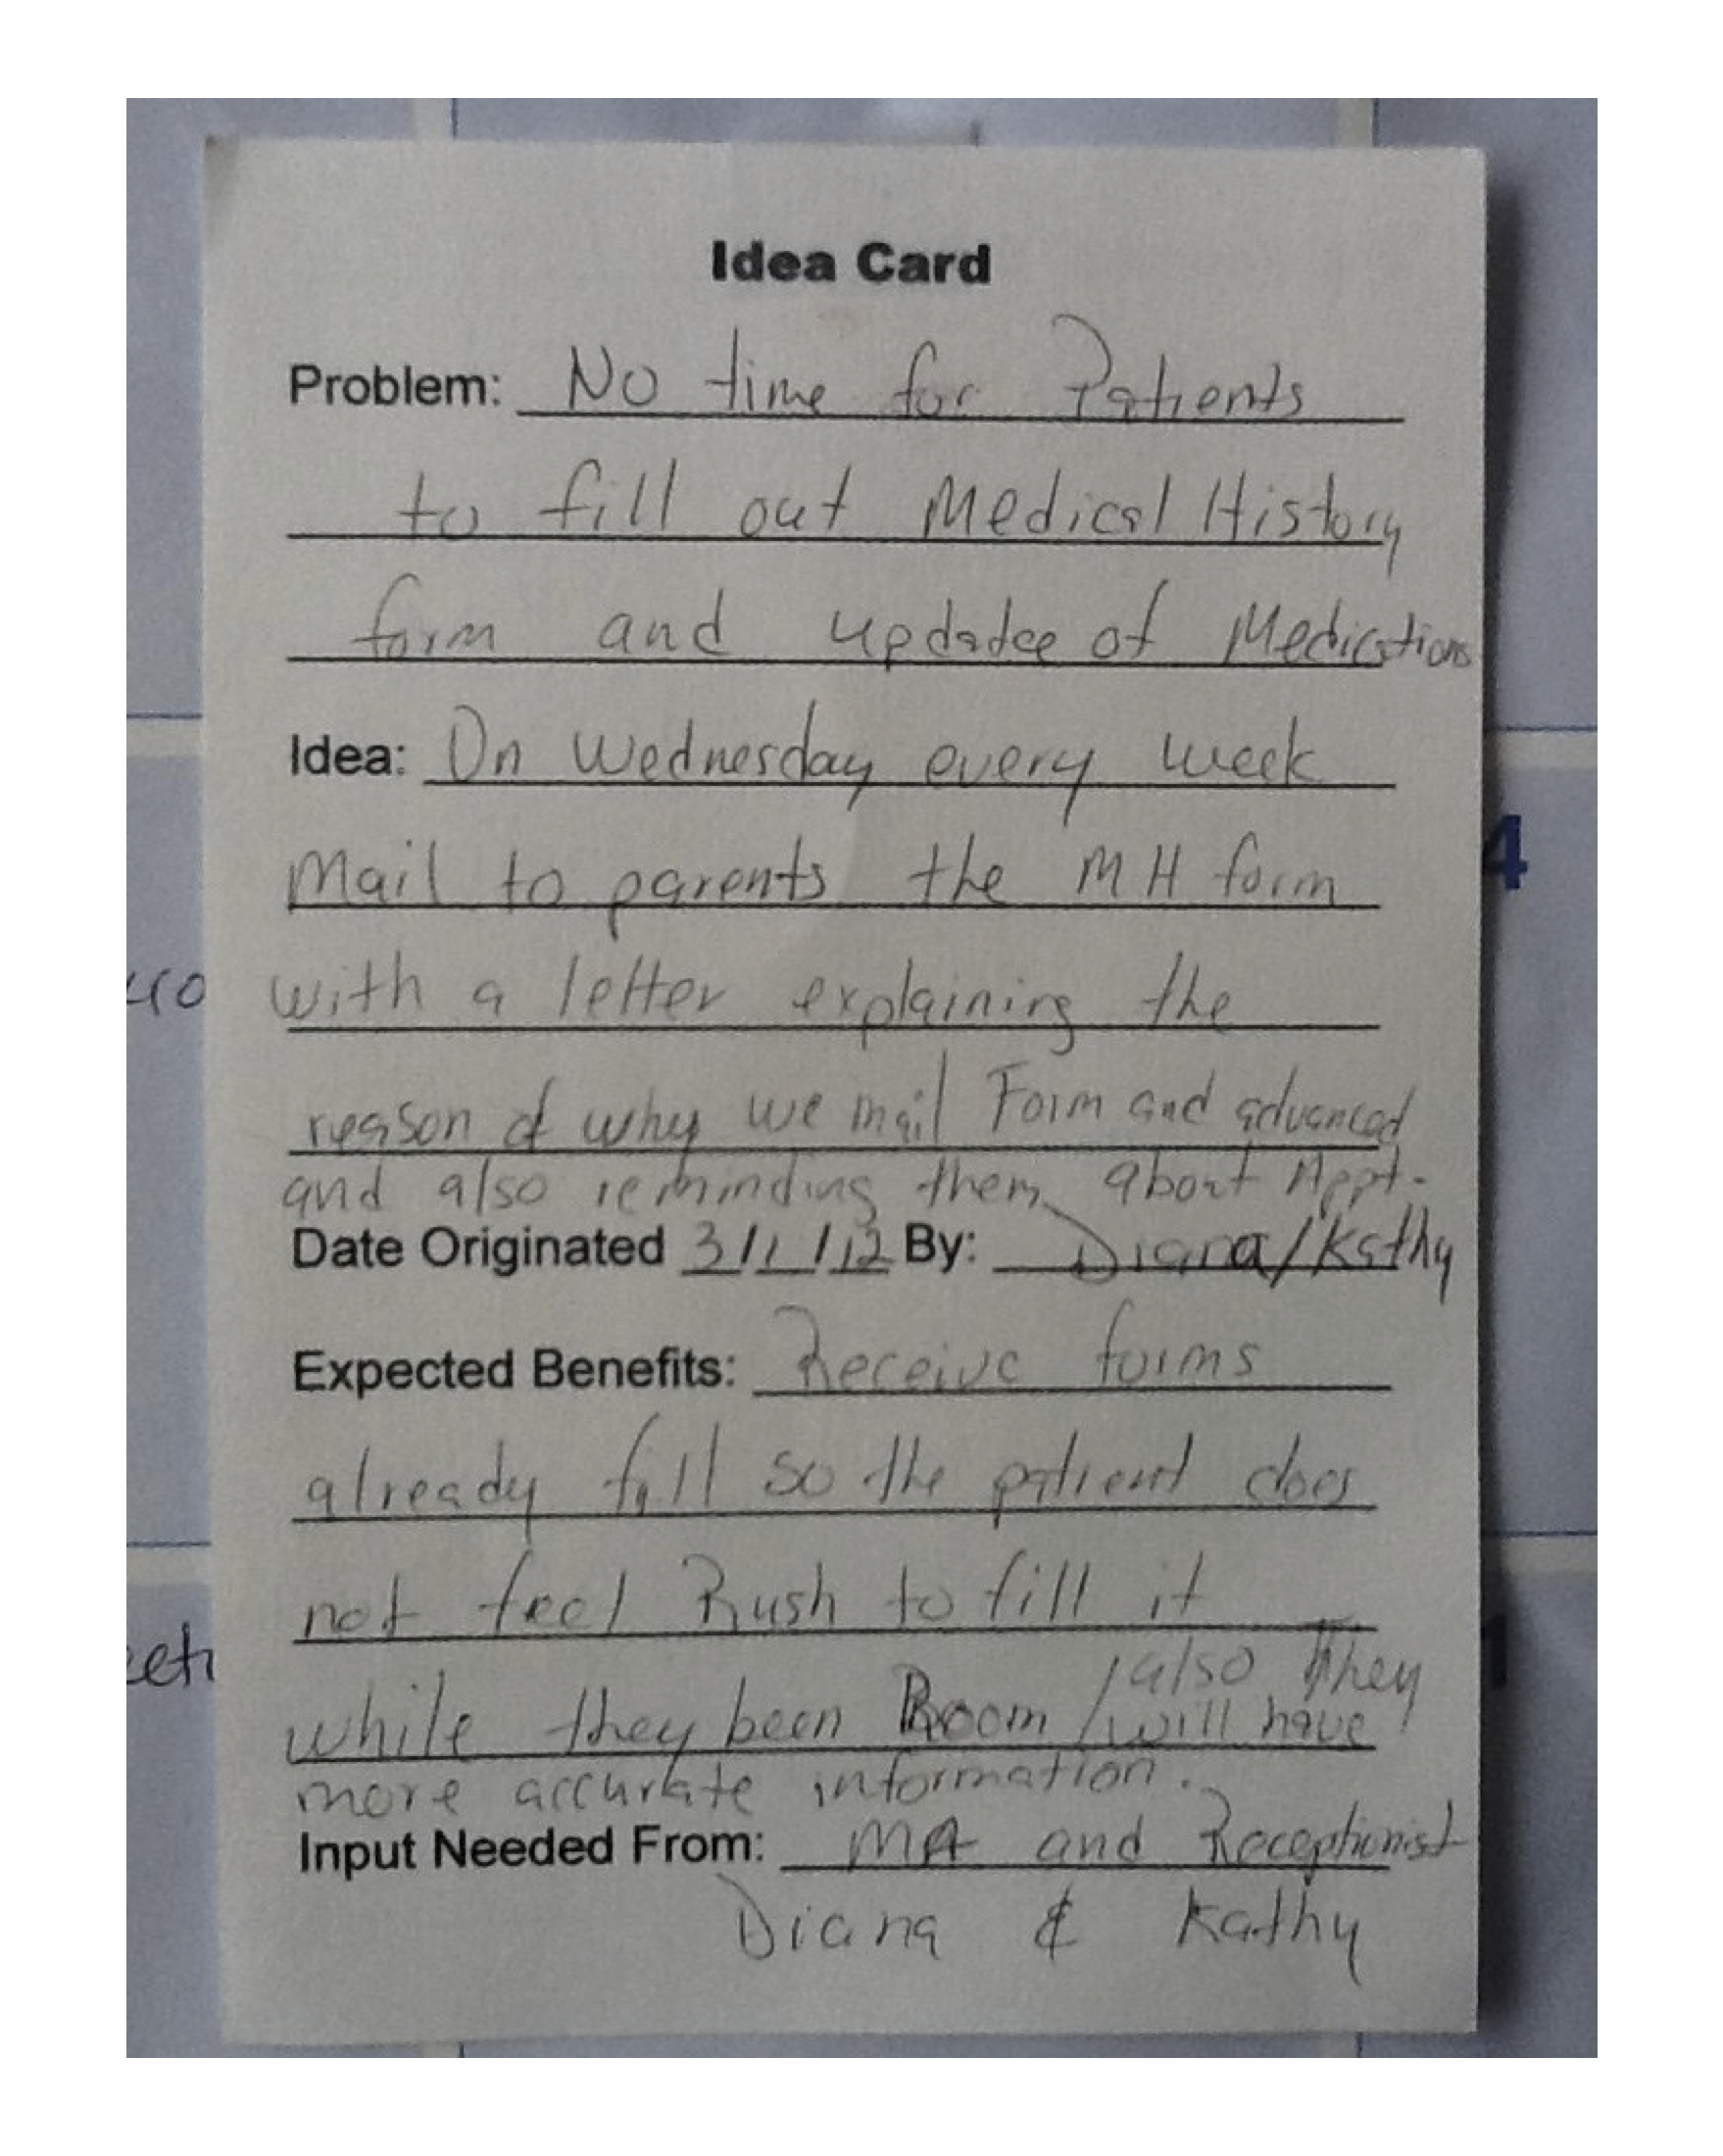 Idea Card
Problem: No time for Patients
to fill out Medical History
form and updatee of Medications
Idea: On Wednesday every week
Mail to parents the MH form
with a letter explaining the
reason of why we mail Form and advanced
and also reminding them about Appt.
Date Originated 3/1/12 By: Diana/Kathy
Expected Benefits: Receive forms
already fill so the patient does
not feel Rush to fill it
while they been Room / also they
will have
more accurate information.
Input Needed From: MA and Receptionist
Diana & Kathy
4